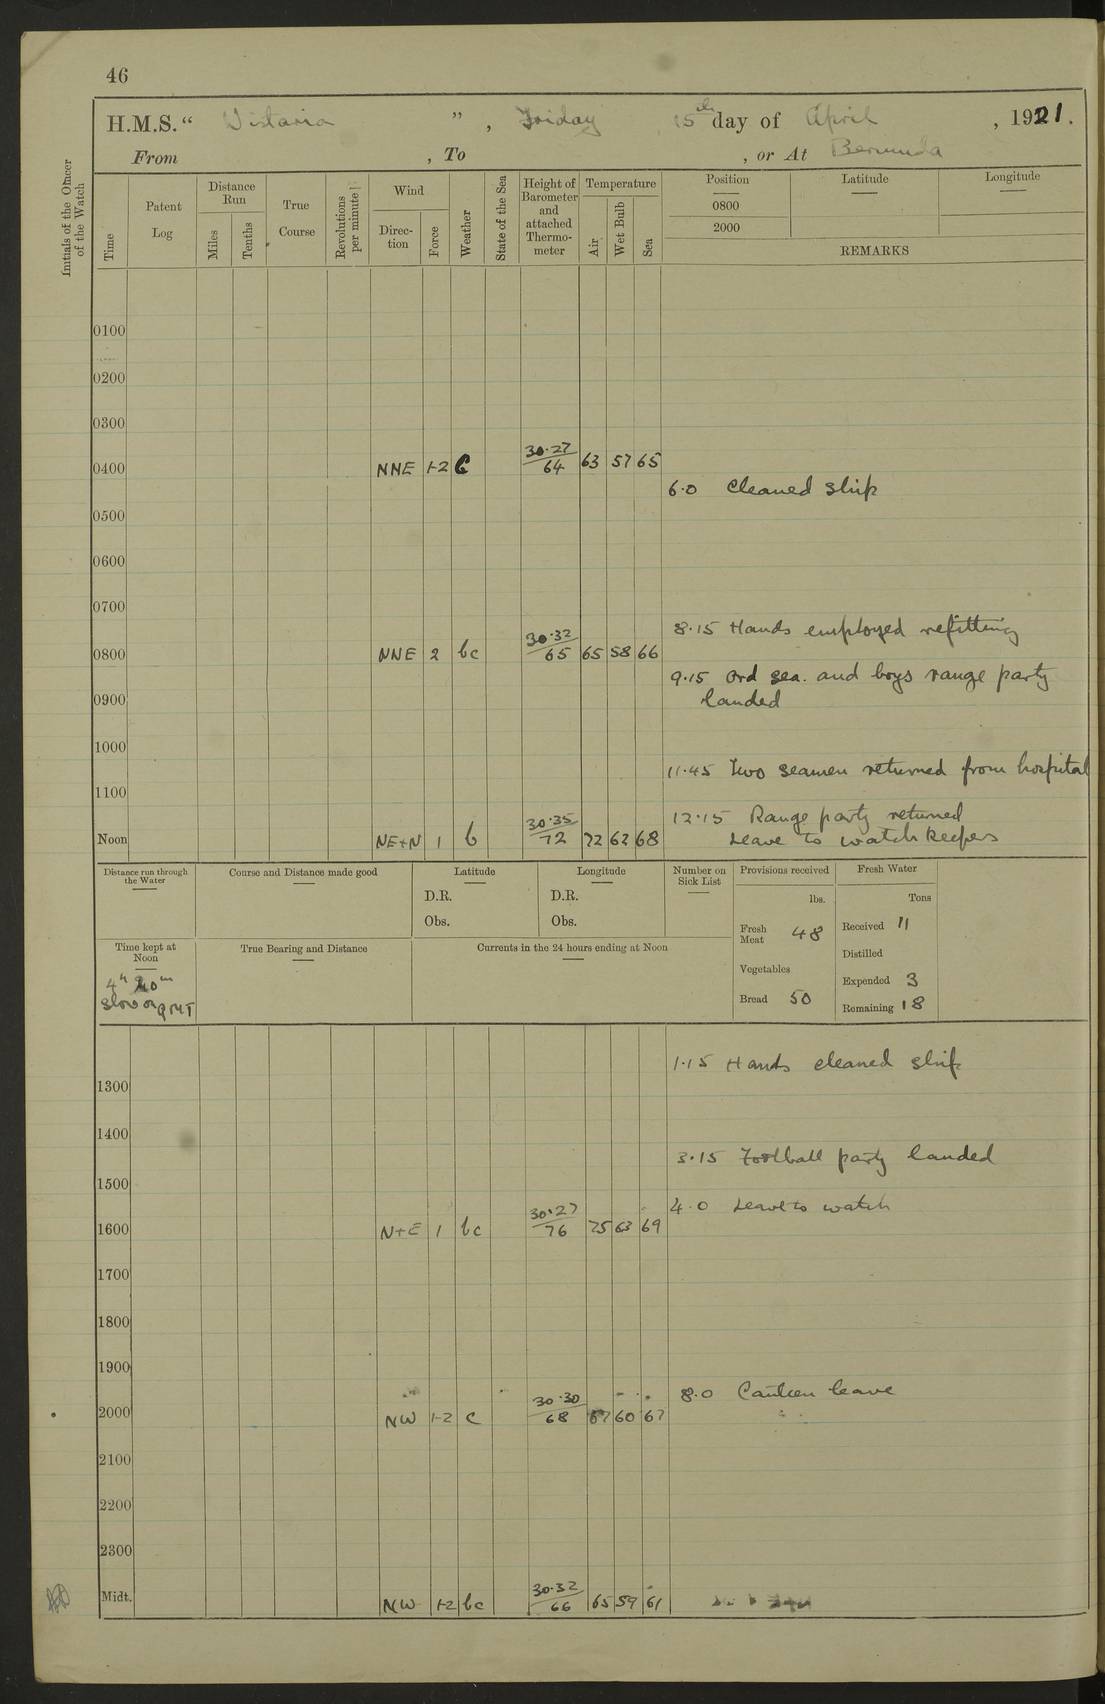 46
H.M.S. " Wistaria ", Friday 15th day of April, 1921.
From , To , or At Bermuda
Initials of the Officer of the Watch
Time
Patent Log
Distance Run
Miles
Tenths
True Course
Revolutions per minute
Wind
Direc-tion
Force
Weather
State of the Sea
Height of Barometer and attached Thermo-meter
Temperature
Air
Wet Bulb
Sea
Position Latitude Longitude
0800
2000
REMARKS
0100
0200
0300
0400 NNE 1-2 C 30.27/64 63 57 65
6.0 Cleaned ship
0500
0600
0700
8.15 Hands employed refitting
0800 NNE 2 bc 30.32/65 65 58 66
9.15 Ord sea. and boys range party
0900 landed
1000
11.45 Two seamen returned from hospital
1100
12.15 Range party returned
Noon NE+N 1 b 30.35/72 72 62 68 Leave to watchkeepers
Distance run through the Water
Course and Distance made good
Latitude
D.R.
Obs.
Longitude
D.R.
Obs.
Number on Sick List
Provisions received
lbs.
Fresh Meat 48
Vegetables
Bread 50
Fresh Water
Tons
Received 11
Distilled
Expended 3
Remaining 18
Time kept at Noon
4h 20m
slow on GMT
True Bearing and Distance
Currents in the 24 hours ending at Noon
1.15 Hands cleaned ship
1300
1400
3.15 Football party landed
1500
4.0 Leave to watch
1600 N+E 1 bc 30.27/76 75 63 69
1700
1800
1900
8.0 Canteen leave
2000 NW 1-2 C 30.30/68 67 60 67
2100
2200
2300
Midt. NW 1-2 bc 30.32/66 65 59 61